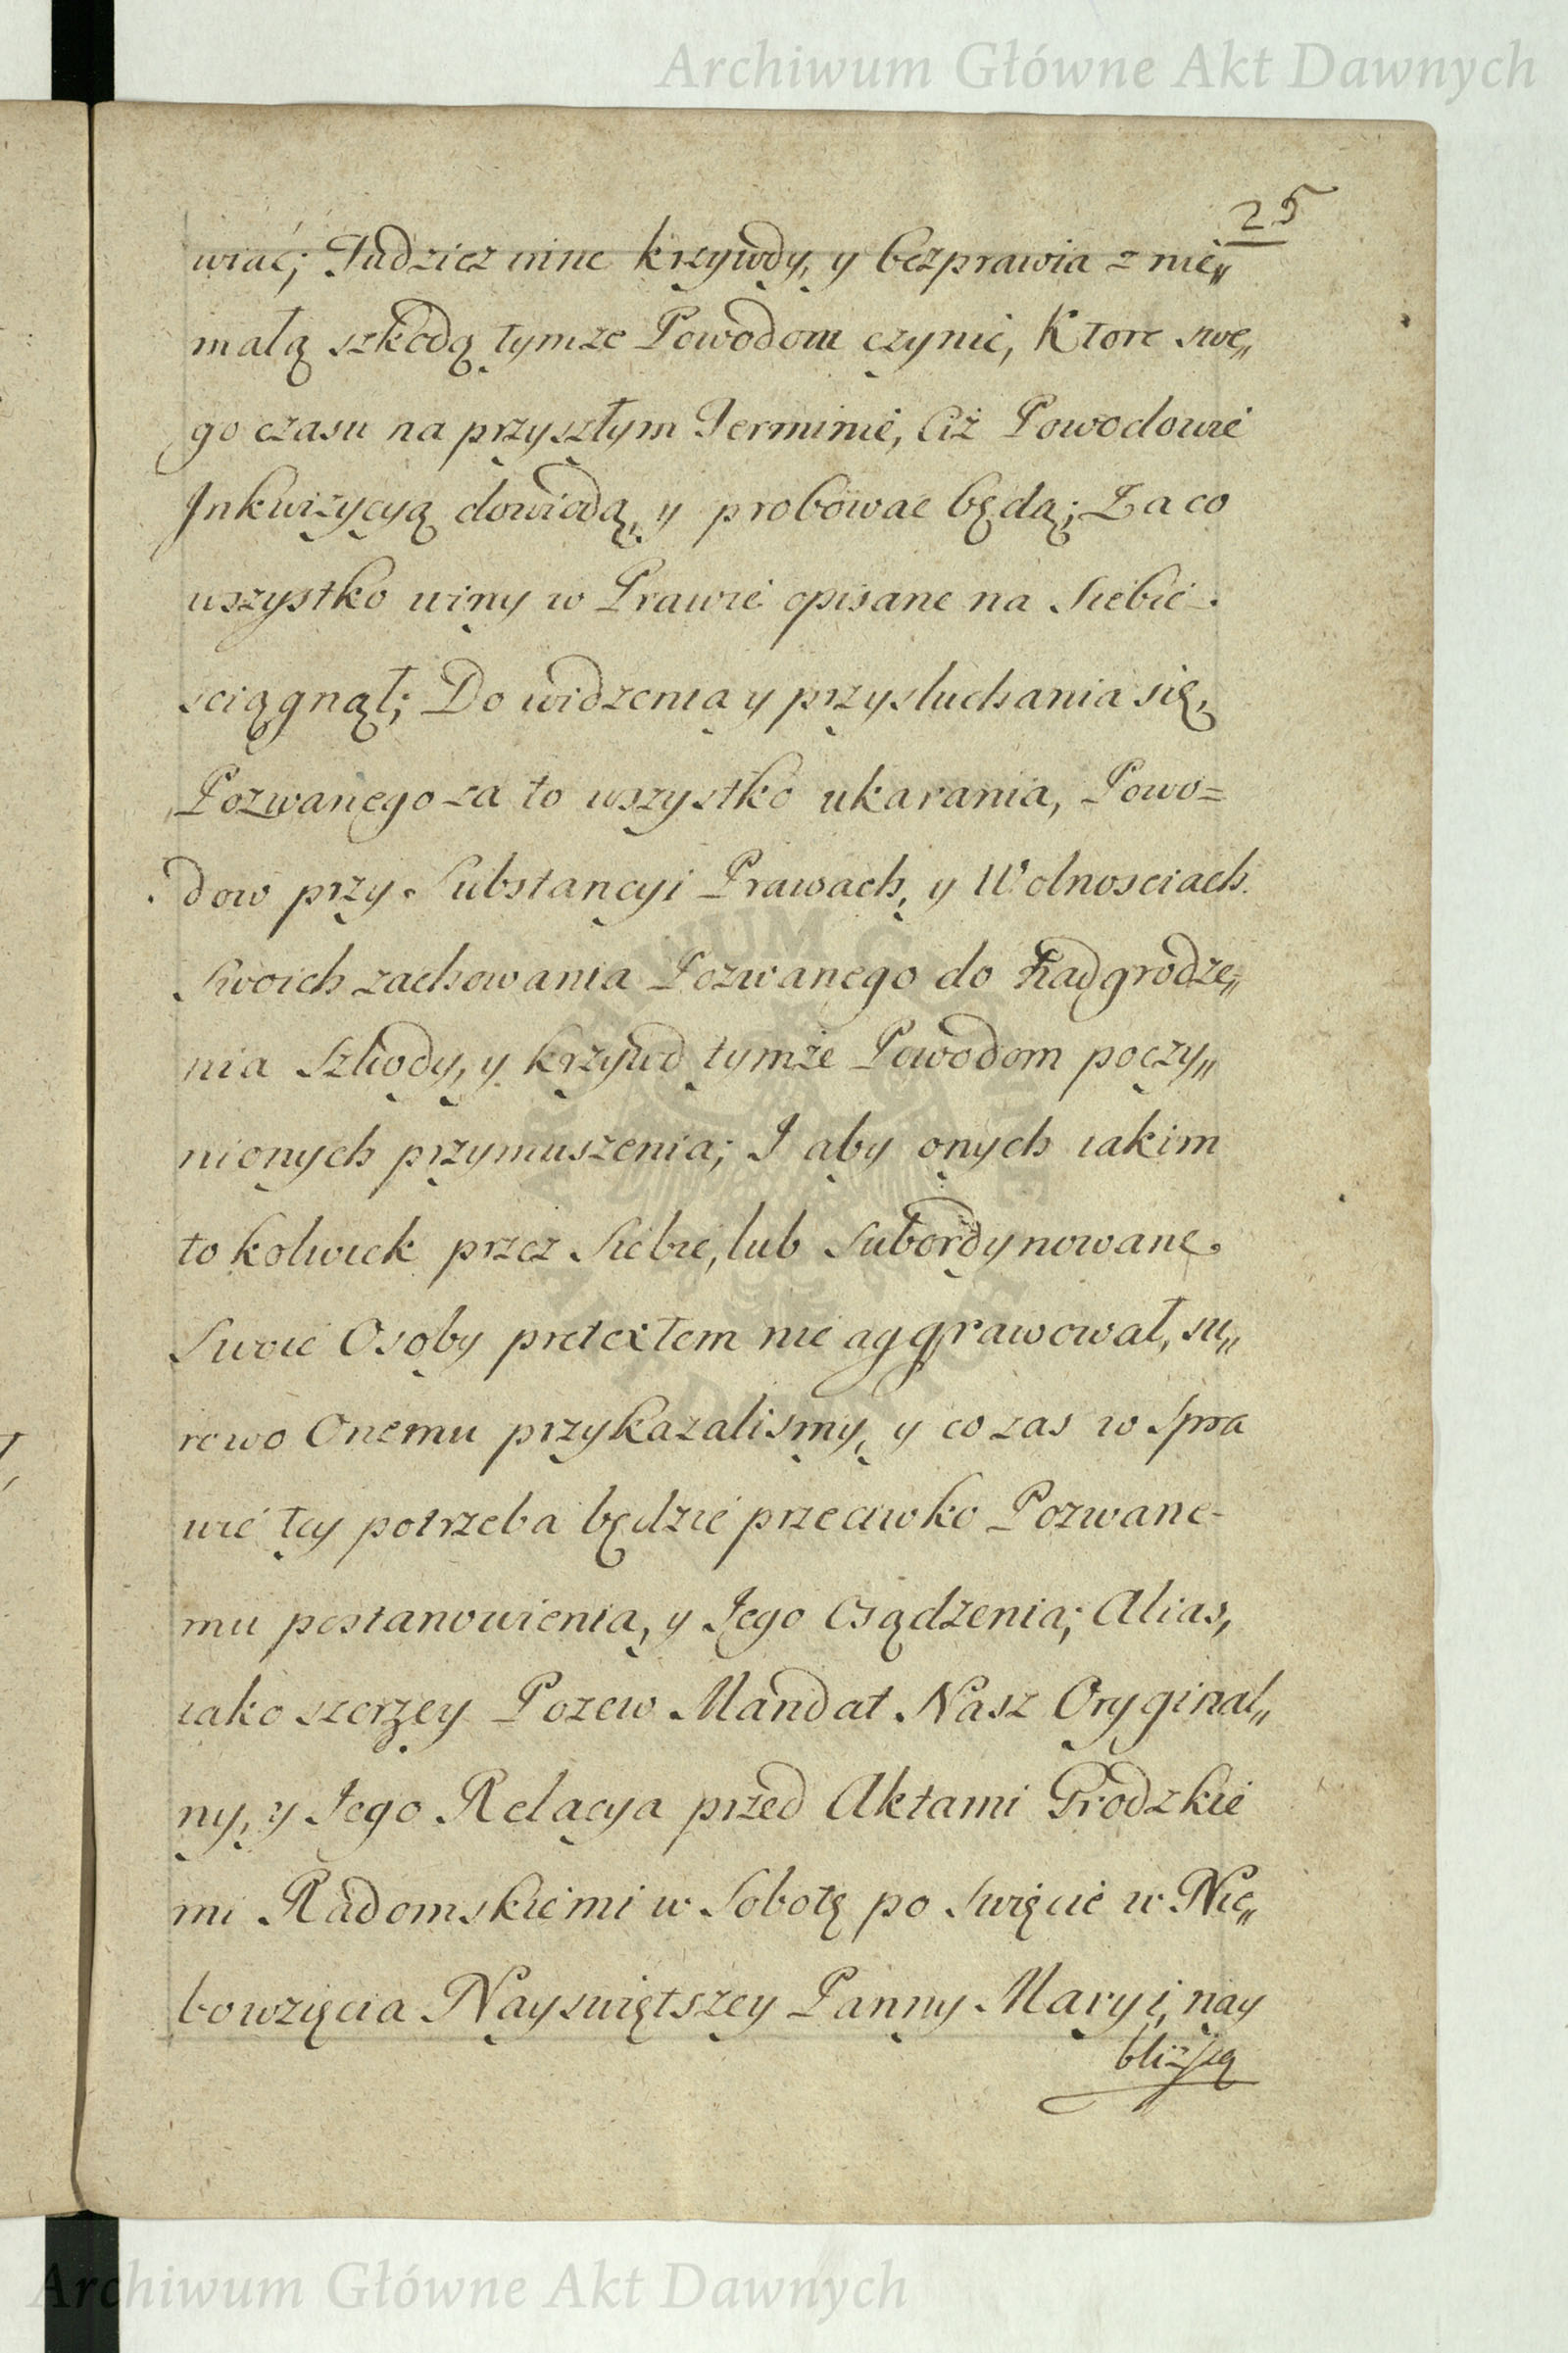 Archiwum Główne Akt Dawnych
25
wiać; Tudzież inne krzywdy, y bezprawia z nie„
małą szkodą tymże Powodom czynić, Ktore swe„
go czasu na przyszłym Terminie, Ciż Powodowie
Inkwizycyą dowiodą, y probować będą; Za co
wszystko winy w Prawie opisane na Siebie
sciągnął; Do widzenia y przysłuchania się,
Pozwanego za to wszystko ukarania, Powo=
dow przy Substancyi Prawach, y Wolnosciach
Swoich zachowania Pozwanego do nadgrodze„
nia Szkody, y krzywd tymże Powodom poczy„
nionych przymuszenia; I aby onych iakim
to kolwiek przez Siebie, lub Subordynowane
Swoie Osoby pretextem nie aggrawował, su„
rowo Onemu przykazalismy, y co zas w Spra
wie tey potrzeba będzie przeciwko Pozwane-
mu postanowienia, y Jego Osądzenia; Alias,
iako szerzey Pozew Mandat Nasz Oryginal„
ny, y Jego Relacya przed Aktami Grodzkie
mi Radomskiemi w Sobotę po Swięcie w Nie„
bowzięcia Nayswiętszey Panny Maryi, nay
bliższą
Archiwum Główne Akt Dawnych